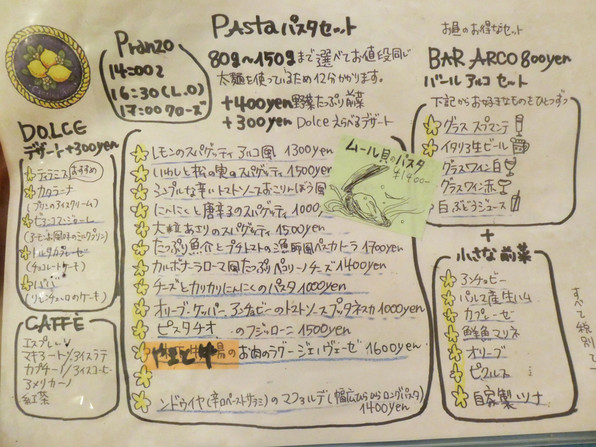 Pranzo
14:00 L
16:30 (L.O)
17:00 クローズ
PASta パスタセット
80g〜150gまで選べてお値段同じ
太麺を使っているため12分かかります。
+400yen 野菜たっぷり前菜
+300yen Dolce えらべるデザート
お昼のお得なセット
BAR ARCO 800yen
バール アルコ セット
下記からお好きなものをひとつずつ
グラス スプマンテ
イタリア生ビール
グラスワイン白
グラスワイン赤
白ぶどうジュース
+
小さな前菜
アンチョビー
パルマ産生ハム
カプレーゼ
鮮魚マリネ
オリーブ
ピクルス
自家製ツナ
すべて税別で
DOLCE
デザート+300yen
ティラミス おすすめ
カタラーナ
(プリンのアイスクリーム)
(アーモンド風味のミルクプリン)
(チョコレートケーキ)
ババ
(リモンチェッロのケーキ)
CAFFÈ
エスプレッソ
マキアート/アイスラテ
カプチーノ/アイスコーヒー
アメリカーノ
紅茶
レモンのスパゲッティ アルコ風 1300yen
いわしと松の実のスパゲッティ 1500yen
シンプルな辛いトマトソースおこりんぼう風
にんにくと唐辛子のスパゲッティ 1000
大粒あさりのスパゲッティ 1500yen
たっぷり魚介とプチトマトの漁師風ペスカトーラ 1700yen
カルボナーラローマ風たっぷりペコリーノチーズ 1400yen
チーズとカリカリにんにくのパスタ 1000yen
オリーブ・ケッパー・アンチョビーのトマトソースプッタネスカ 1000yen
ピスタチオ のフジッローニ 1500yen
のお肉のラグー ジェノヴェーゼ 1600yen
ンドゥイヤ(辛口ペーストサラミ)のマファルデ(幅広ひらひらロングパスタ)
1400yen
ムール貝のパスタ
¥1400-